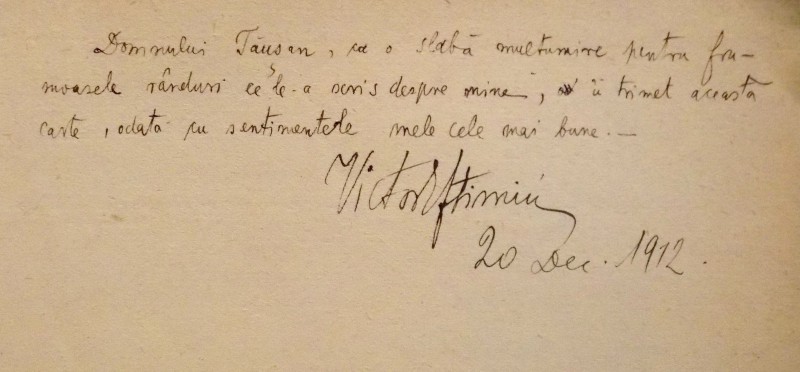 Domnului Tăusan, ca o slabă multumire pentru fru-
moasele rânduri ce le-a scris despre mine, îi trimet aceasta
carte, odată cu sentimentele mele cele mai bune. —
Victor Eftimiu
20 Dec. 1912.